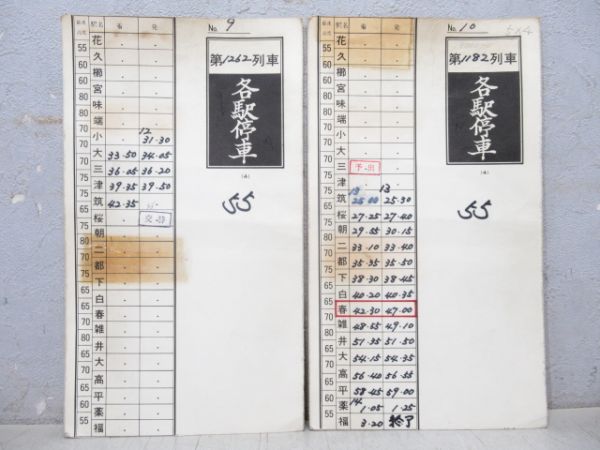 最高速度 駅名 着 発
花
55 久
65 櫛
60 宮
70 味
70 端
12
65 小 31.30
70 大 33.50 34.05
70 三 36.05 36.20
70 津 39.35 39.50
65 筑 42.35
65 桜 交・替
70 朝
75 二
80 都
80 下
75 白
65 春
70 雑
65 井
65 大
65 高
60 平
65 薬
55 福
No. 9
第1262列車
各駅停車
(A)
55
最高速度 駅名 着 発
花
55 久
65 櫛
60 宮
70 味
70 端
65 小
70 大
70 三 予・出
70 津
13 13
65 筑 25.00 25.30
65 桜 27.25 27.40
70 朝 29.55 30.15
75 二 33.10 33.40
80 都 35.35 35.50
80 下 38.30 38.45
75 白 40.20 40.35
65 春 42.30 47.00
70 雑 48.55 49.10
65 井 51.35 51.50
65 大 54.15 54.35
65 高 56.40 56.55
60 平 58.45 59.00
14
65 薬 1.05 1.25
55 福 3.20 終了
No. 10
第1182列車
各駅停車
(A)
55